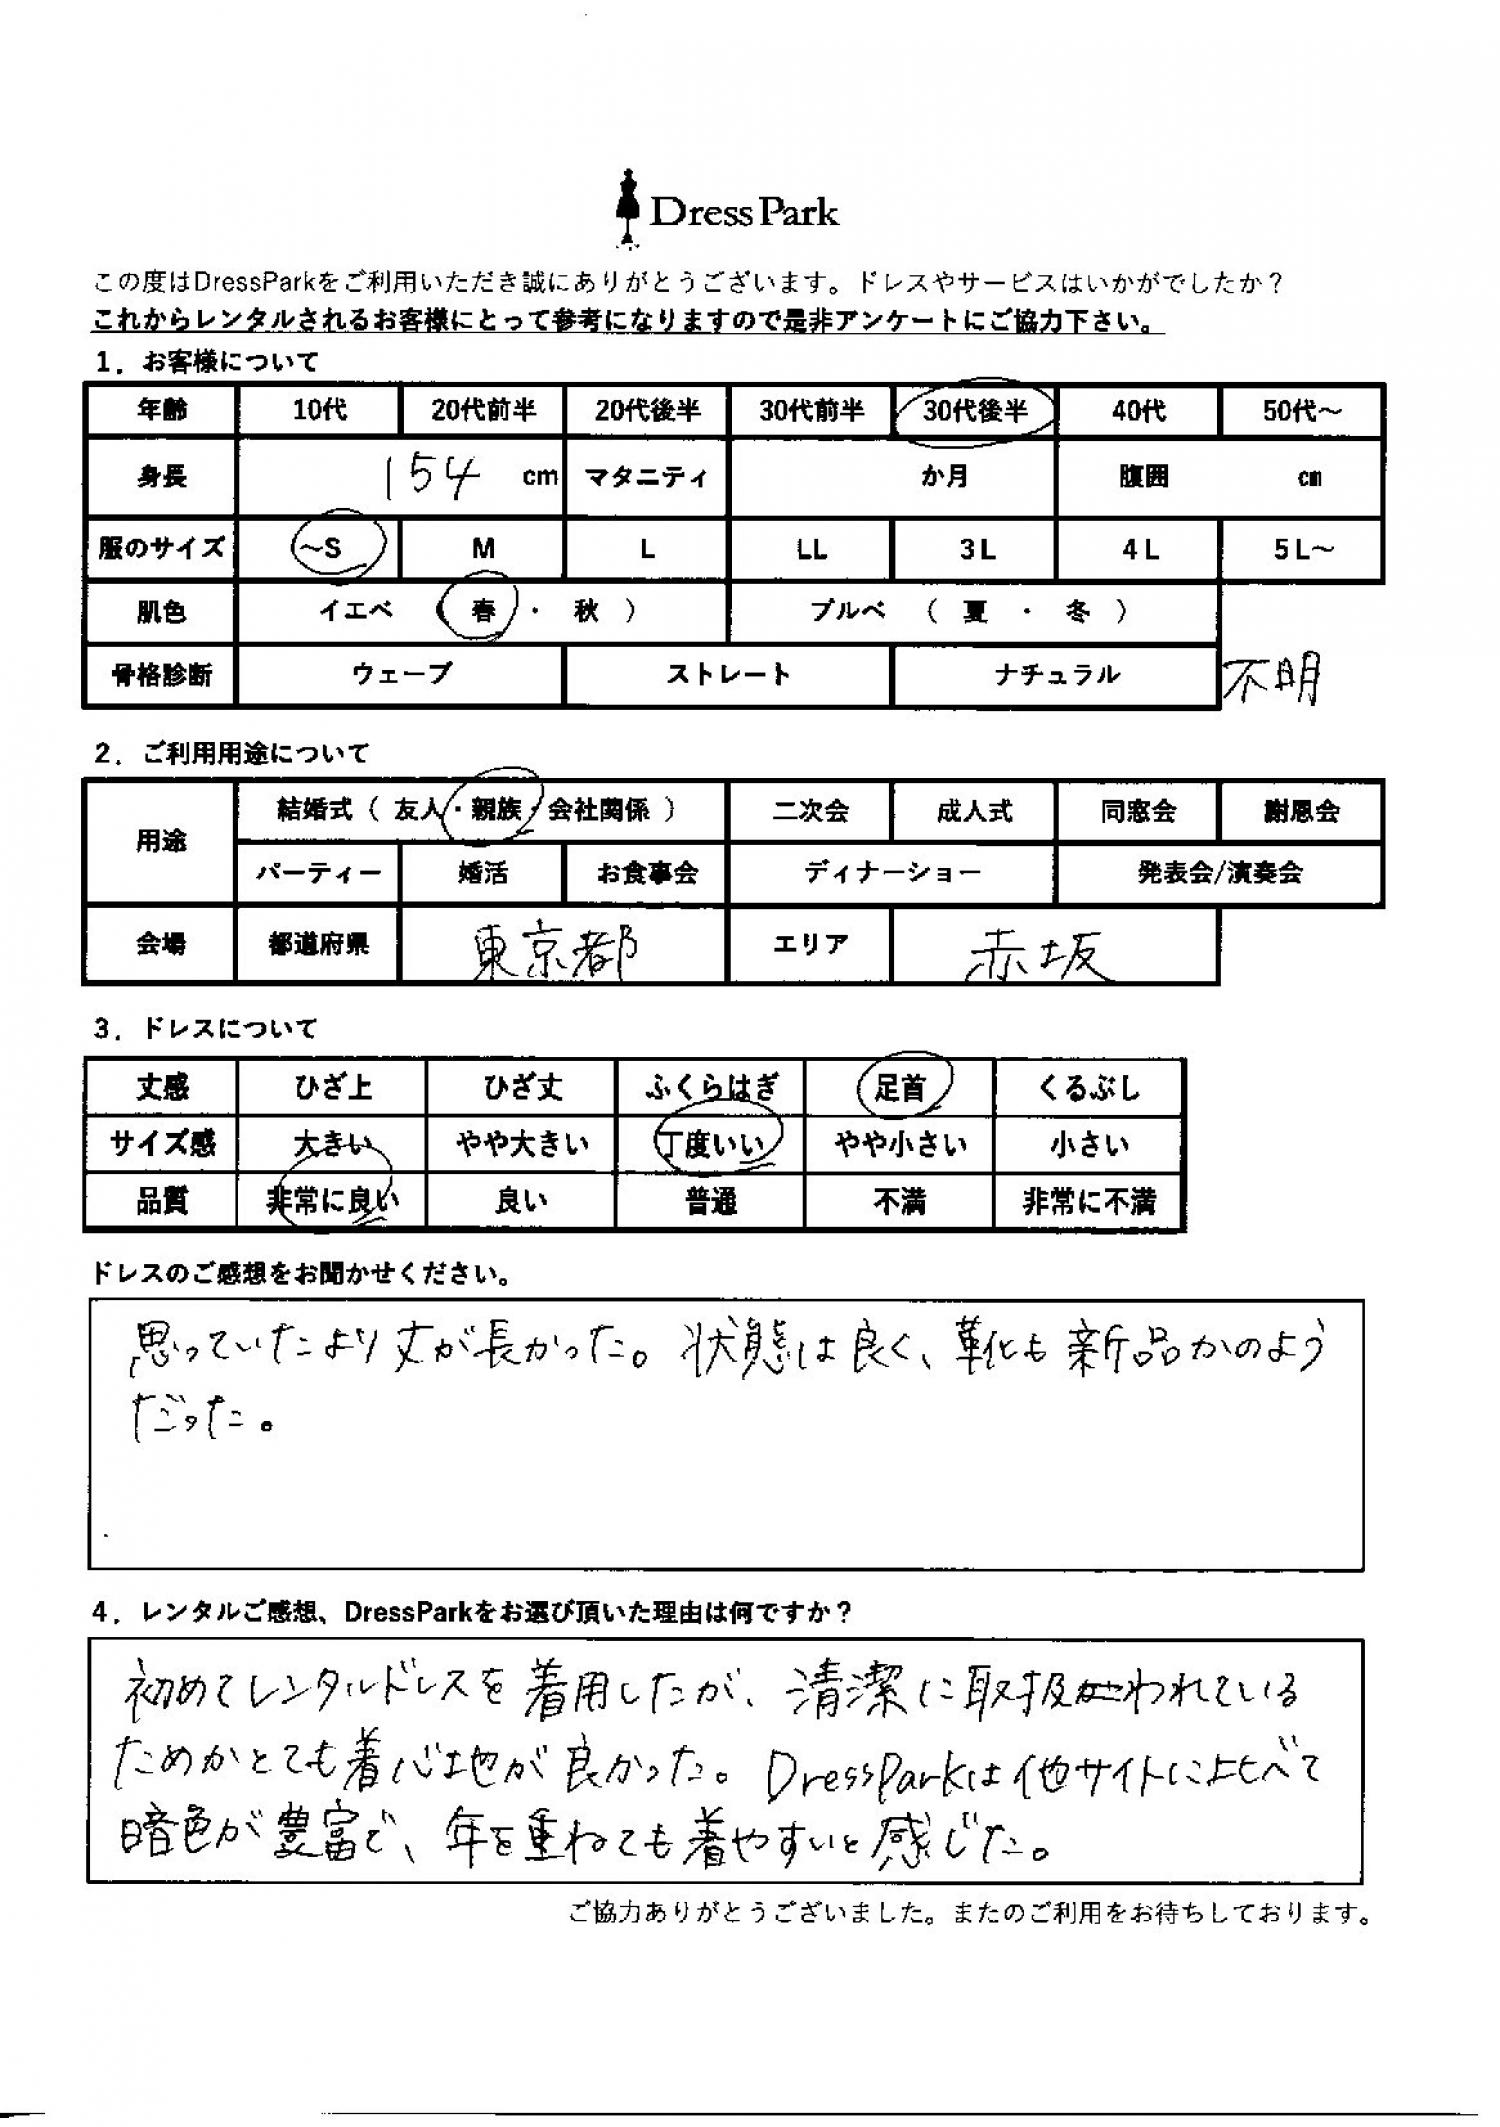 DressPark
この度はDressParkをご利用いただき誠にありがとうございます。ドレスやサービスはいかがでしたか？
これからレンタルされるお客様にとって参考になりますので是非アンケートにご協力下さい。
1．お客様について
年齢 10代 20代前半 20代後半 30代前半 30代後半 40代 50代～
身長 154 cm マタニティ か月 腹囲 cm
服のサイズ ～S M L LL 3L 4L 5L～
肌色 イエベ （ 春 ・ 秋 ） ブルベ （ 夏 ・ 冬 ）
骨格診断 ウェーブ ストレート ナチュラル 不明
2．ご利用用途について
用途 結婚式（ 友人・親族・会社関係 ） 二次会 成人式 同窓会 謝恩会
パーティー 婚活 お食事会 ディナーショー 発表会/演奏会
会場 都道府県 東京都 エリア 赤坂
3．ドレスについて
丈感 ひざ上 ひざ丈 ふくらはぎ 足首 くるぶし
サイズ感 大きい やや大きい 丁度いい やや小さい 小さい
品質 非常に良い 良い 普通 不満 非常に不満
ドレスのご感想をお聞かせください。
思っていたより丈が長かった。状態は良く、靴も新品かのよう
だった。
4．レンタルご感想、DressParkをお選び頂いた理由は何ですか？
初めてレンタルドレスを着用したが、清潔に取扱われている
ためかとても着心地が良かった。DressParkは他サイトに比べて
暗色が豊富で、年を重ねても着やすいと感じた。
ご協力ありがとうございました。またのご利用をお待ちしております。